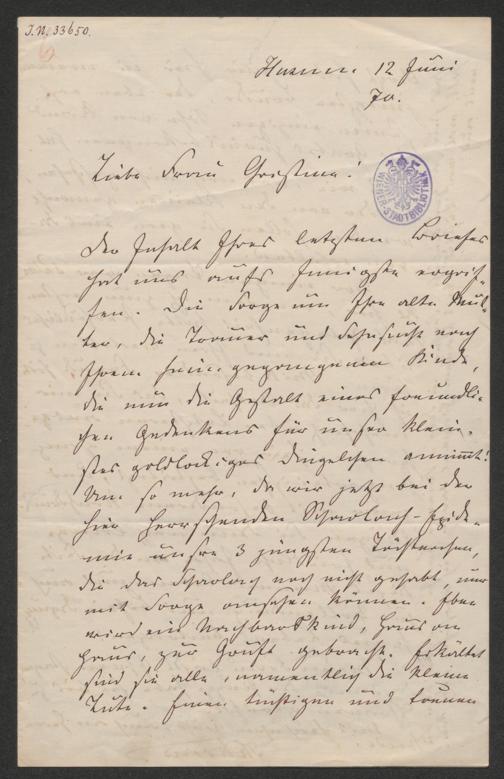 J.N. 33650.
Husum. 12 Juni
70.
Liebe Frau Christine!
WIENER STADTBIBLIOTHEK
Der Inhalt Ihres letzten Briefes
hat uns aufs Innigste ergrif-
fen. Die Sorge um Ihre alte Mut-
ter, die Trauer und Sehnsucht nach
Ihrem heimgegangenen Kinde,
die nun die Gestalt eines freundli-
chen Gedenkens für unser klein-
stes goldlockiges Dingelchen annimmt!
Um so mehr, da wir jetzt bei der
hier herrschenden Scharlach-Epide-
mie unsre 3 jüngsten Töchterchen,
die das Scharlach noch nicht gehabt, nur
mit Sorge ansehen können. Eben
wird ein Nachbarskind, Haus an
Haus, zur Gruft gebracht. Erkältet
sind sie alle, namentlich die kleine
Lute. Einen tüchtigen und treuen